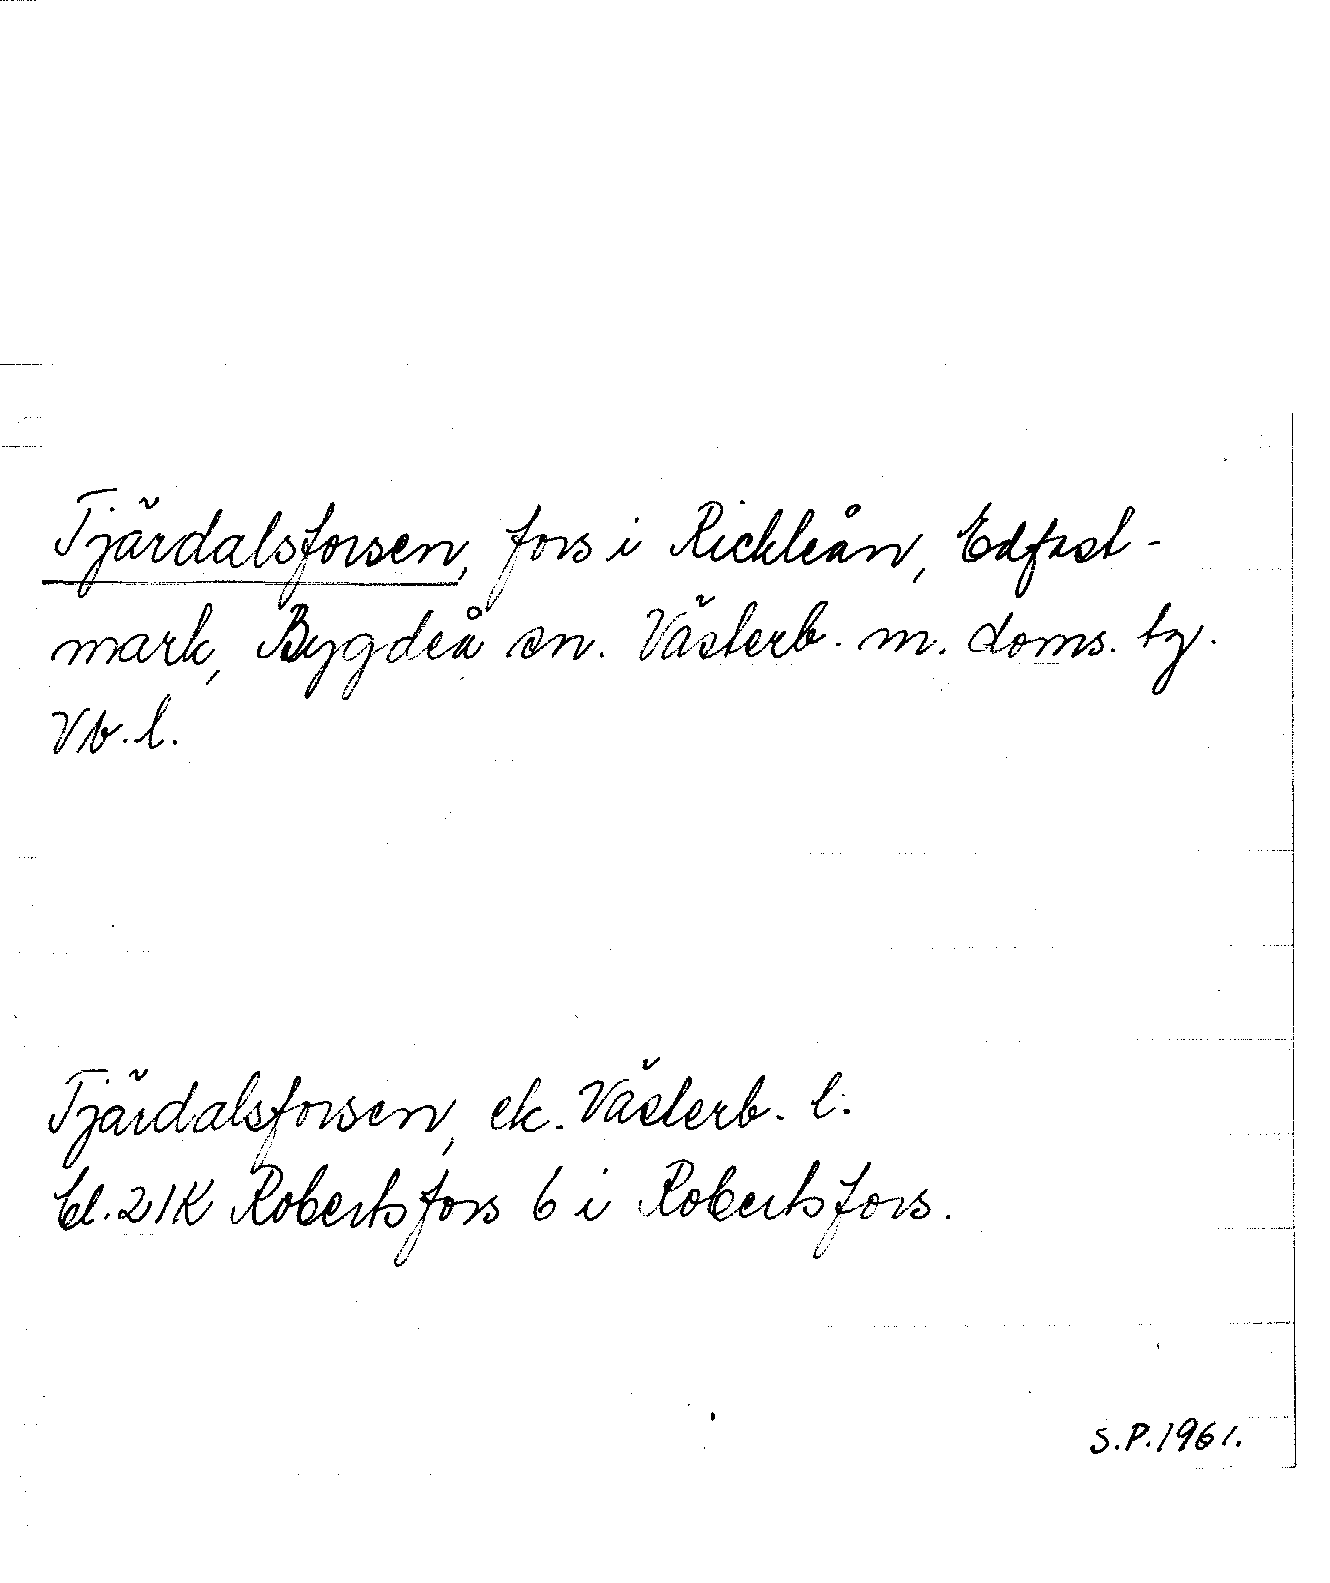 Tjärdalsforsen, fors i Rickleån, Edfast-
mark, Bygdeå sn. Västerb. m. doms. tg.
Vb. l.
Tjärdalsforsen, ek. Västerb. l.
bl. 21K Robertsfors 6 i Robertsfors.
S.P. 1961.